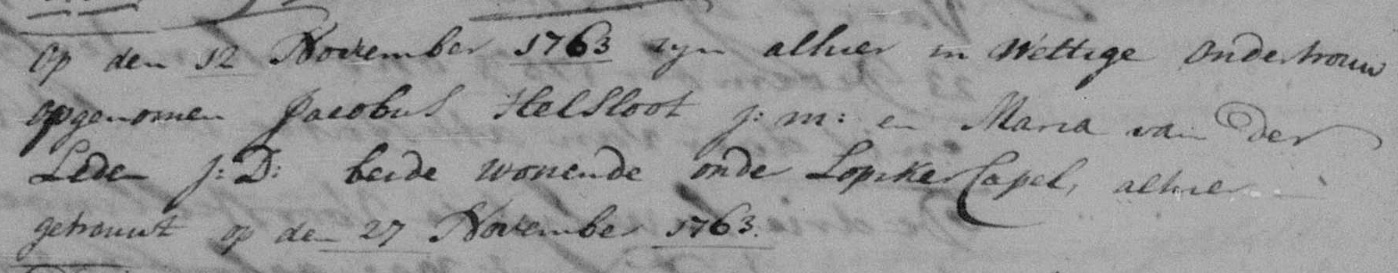 Op den 12 November 1763 zyn alhier in Wettige Ondertrouw
opgenomen Jacobus Helsloot j: m: en Maria van der
Leden j: D: beide wonende onder Lopiker Capel, alhier
getrouwt op den 27 November 1763.